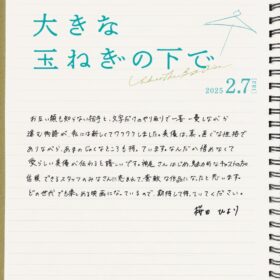 大きな
玉ねぎの下で
Under the Onion
2025 2.7[FRI]
お互い顔も知らない相手と、文字だけのやり取りで一喜一憂しながら
進む物語が、私には新しくてワクワクしました。美優は、真っ直ぐな性格で
ありながら、あまのじゃくなところも持っています。なんだか憎めなくて
愛らしい美優が伝わると嬉しいです。神尾さんはじめ、魅力的なキャストの方と
信頼できるスタッフのみなさんに恵まれて、素敵な作品になったと思います。
どの世代でも楽しめる映画になっているので、期待して待っていてください。
桜田 ひより